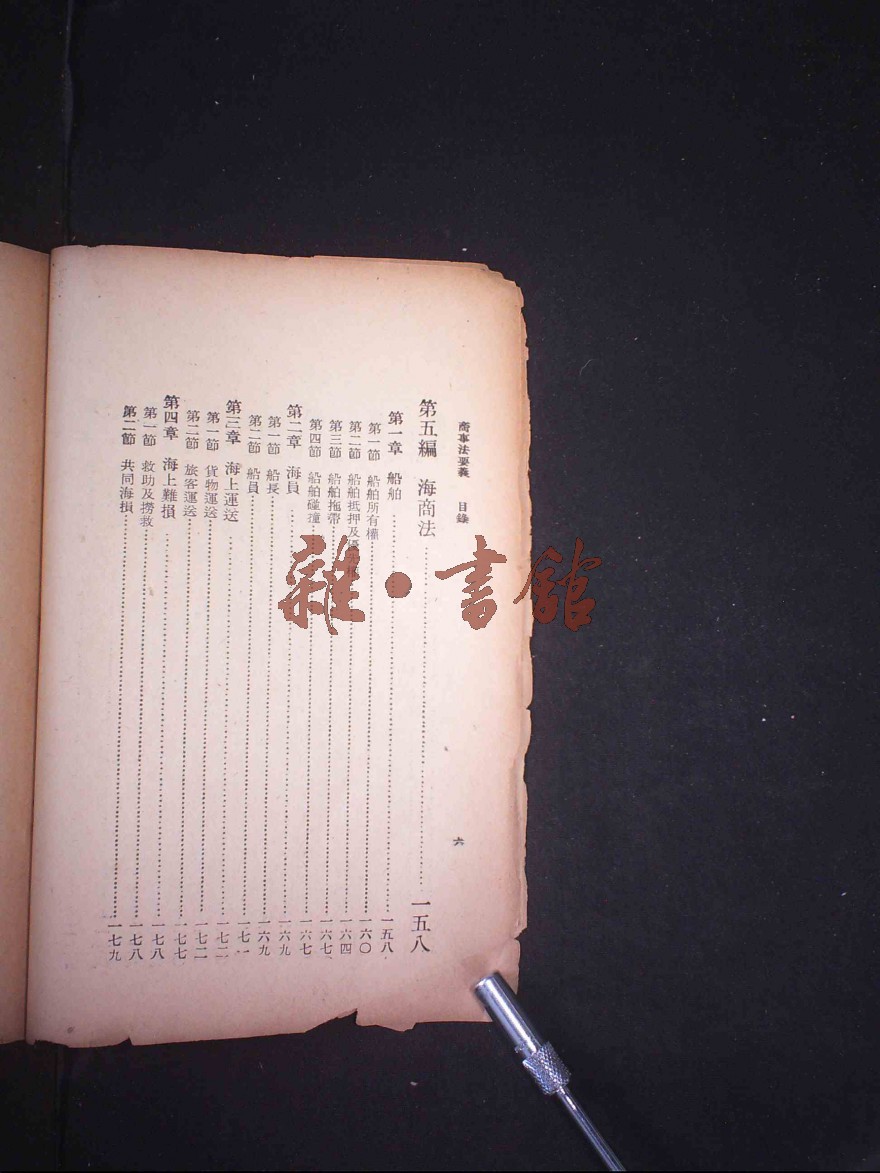 商事法要義 目錄 六
第五編 海商法 一五八
第一章 船舶 一五八
第一節 船舶所有權 一六〇
第二節 船舶抵押及優 一六四
第三節 船舶拖帶 一六七
第四節 船舶碰撞 一六七
第二章 海員 一六九
第一節 船長 一六九
第二節 船員 一七一
第三章 海上運送 一七二
第一節 貨物運送 一七二
第二節 旅客運送 一七七
第四章 海上難損 一七八
第一節 救助及撈救 一七八
第二節 共同海損 一七九
雜·書館